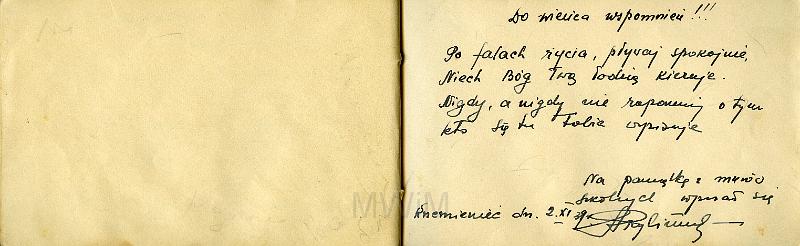 Do wieńca wspomnień!!!
Po falach życia, pływaj spokojnie,
Niech Bóg Twą łodzią kieruje.
Nigdy, a nigdy nie zapomnij o tym
kto się tu Tobie wpisuje
Na pamiątkę z murów
szkolnych wpisał się
Krzemieniec dn. 2.XI 39.
MWiM